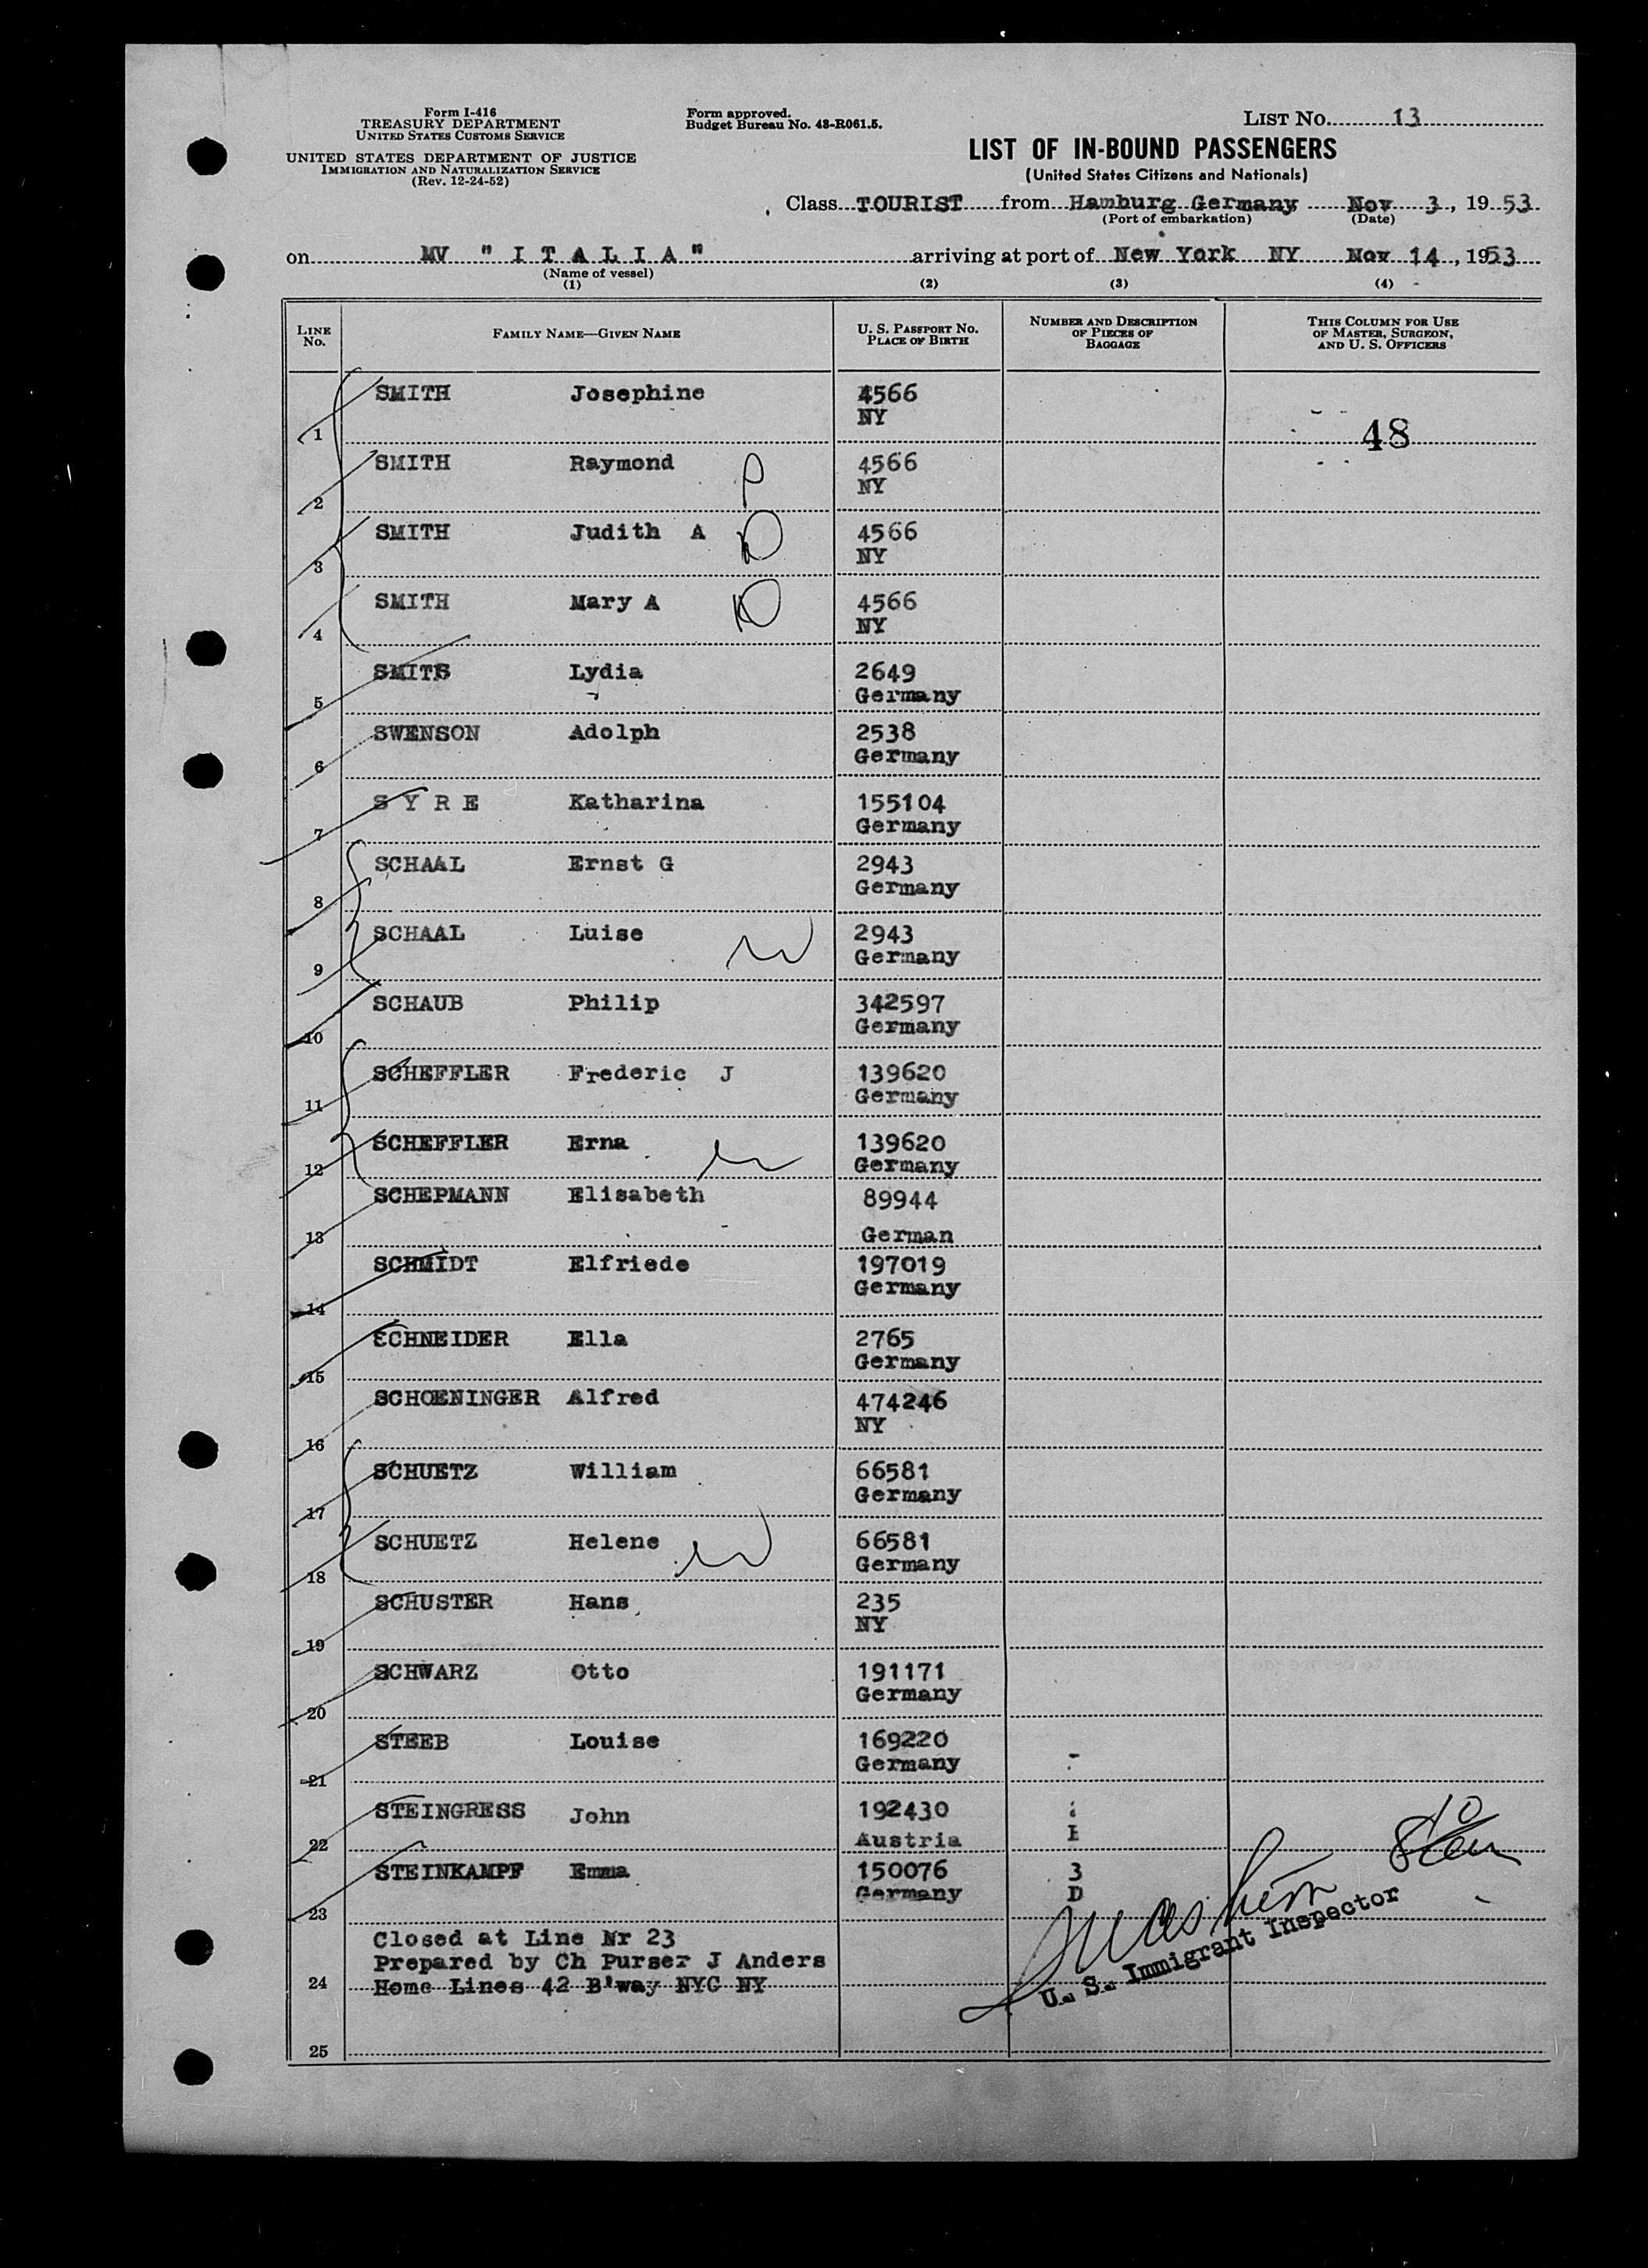 Form I-416
TREASURY DEPARTMENT
UNITED STATES CUSTOMS SERVICE
UNITED STATES DEPARTMENT OF JUSTICE
IMMIGRATION AND NATURALIZATION SERVICE
(Rev. 12-24-52)
Form approved.
Budget Bureau No. 43-R061.5.
LIST NO. 13
LIST OF IN-BOUND PASSENGERS
(United States Citizens and Nationals)
Class TOURIST from Hamburg Germany Nov 3, 1953
(Port of embarkation) (Date)
on MV "ITALIA" arriving at port of New York NY Nov 14, 1953
(Name of vessel)
(1) (2) (3) (4)
LINE No. FAMILY NAME—GIVEN NAME U. S. PASSPORT NO. PLACE OF BIRTH NUMBER AND DESCRIPTION OF PIECES OF BAGGAGE THIS COLUMN FOR USE OF MASTER, SURGEON, AND U. S. OFFICERS
SMITH Josephine 4566
NY
1 48
SMITH Raymond 4566
NY
2
SMITH Judith A 4566
NY
3
SMITH Mary A 4566
NY
4
SMITS Lydia 2649
Germany
5
SWENSON Adolph 2538
Germany
6
SYRE Katharina 155104
Germany
7
SCHAAL Ernst G 2943
Germany
8
SCHAAL Luise 2943
Germany
9
SCHAUB Philip 342597
Germany
10
SCHEFFLER Frederic J 139620
Germany
11
SCHEFFLER Erna 139620
Germany
12
SCHEPMANN Elisabeth 89944
German
13
SCHMIDT Elfriede 197019
Germany
14
SCHNEIDER Ella 2765
Germany
15
SCHOENINGER Alfred 474246
NY
16
SCHUETZ William 66581
Germany
17
SCHUETZ Helene 66581
Germany
18
SCHUSTER Hans 235
NY
19
SCHWARZ Otto 191171
Germany
20
STEEB Louise 169220
Germany
21
STEINGRESS John 192430
Austria
22
STEINKAMPF Emma 150076 3
Germany D
23
Closed at Line Nr 23
Prepared by Ch Purser J Anders
24 Home Lines 42 B'way NYC NY
U. S. Immigrant Inspector
25